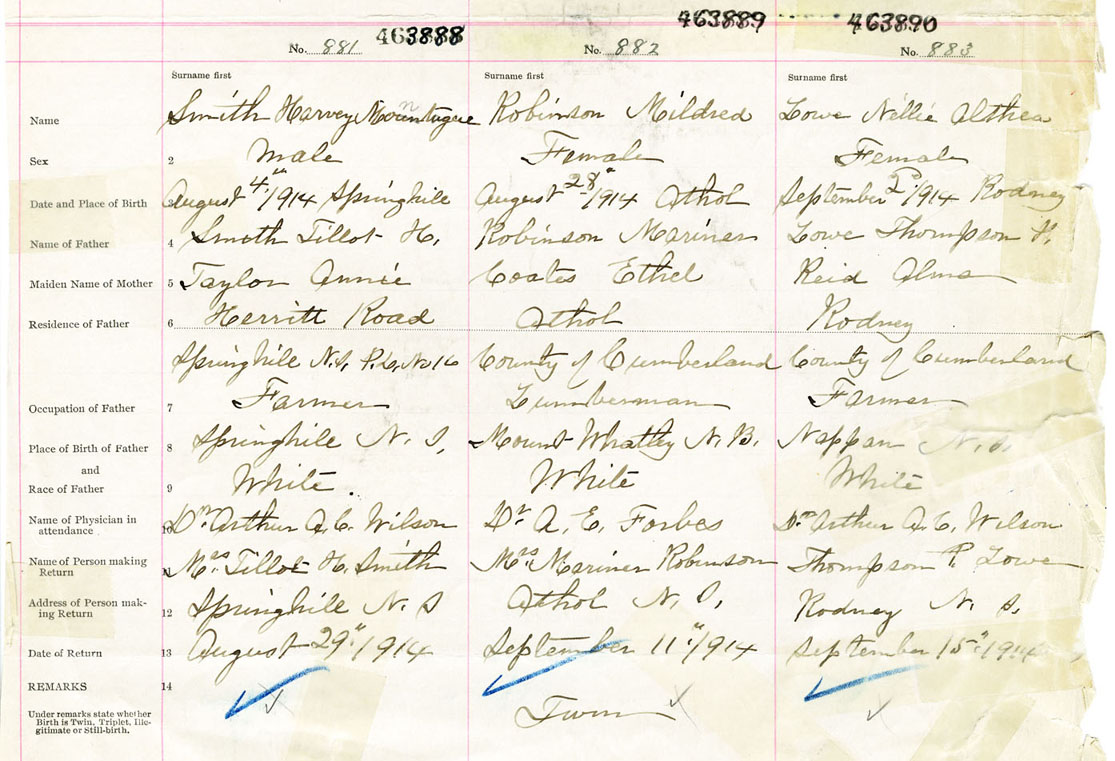 463888 463889 463890
No. 881 No. 882 No. 883
Surname first Surname first Surname first
Name Smith Harvey Mountague Robinson Mildred Lowe Nellie Althea
Sex 2 Male Female Female
Date and Place of Birth 3 August 4"/1914 Springhile August 28"/1914 Athol September 2d/1914 Rodney
Name of Father 4 Smith Tillot H. Robinson Mariner Lowe Thompson P.
Maiden Name of Mother 5 Taylor Annie Coates Ethel Reid Alma
Residence of Father 6 Herritt Road Athol Rodney
Springhile N.S, County of Cumberland County of Cumberland
Occupation of Father 7 Farmer Lumberman Farmer
Place of Birth of Father 8 Springhile N. S, Mount Whatley N. B. Nappan N. S.
and
Race of Father 9 White. White White
Name of Physician in
attendance 10 Dr Arthur A.C. Wilson Dr A. E. Forbes Dr Arthur A.C. Wilson
Name of Person making
Return 11 Mrs Tillot H. Smith Mrs Mariner Robinson Thompson P. Lowe
Address of Person mak-
ing Return 12 Springhile N. S Athol N. S, Rodney N. S,
Date of Return 13 August 29"/1914 September 11"/1914 September 15"/1914
REMARKS 14
Under remarks state whether
Birth is Twin, Triplet, Ille-
gitimate or Still-birth. Twin